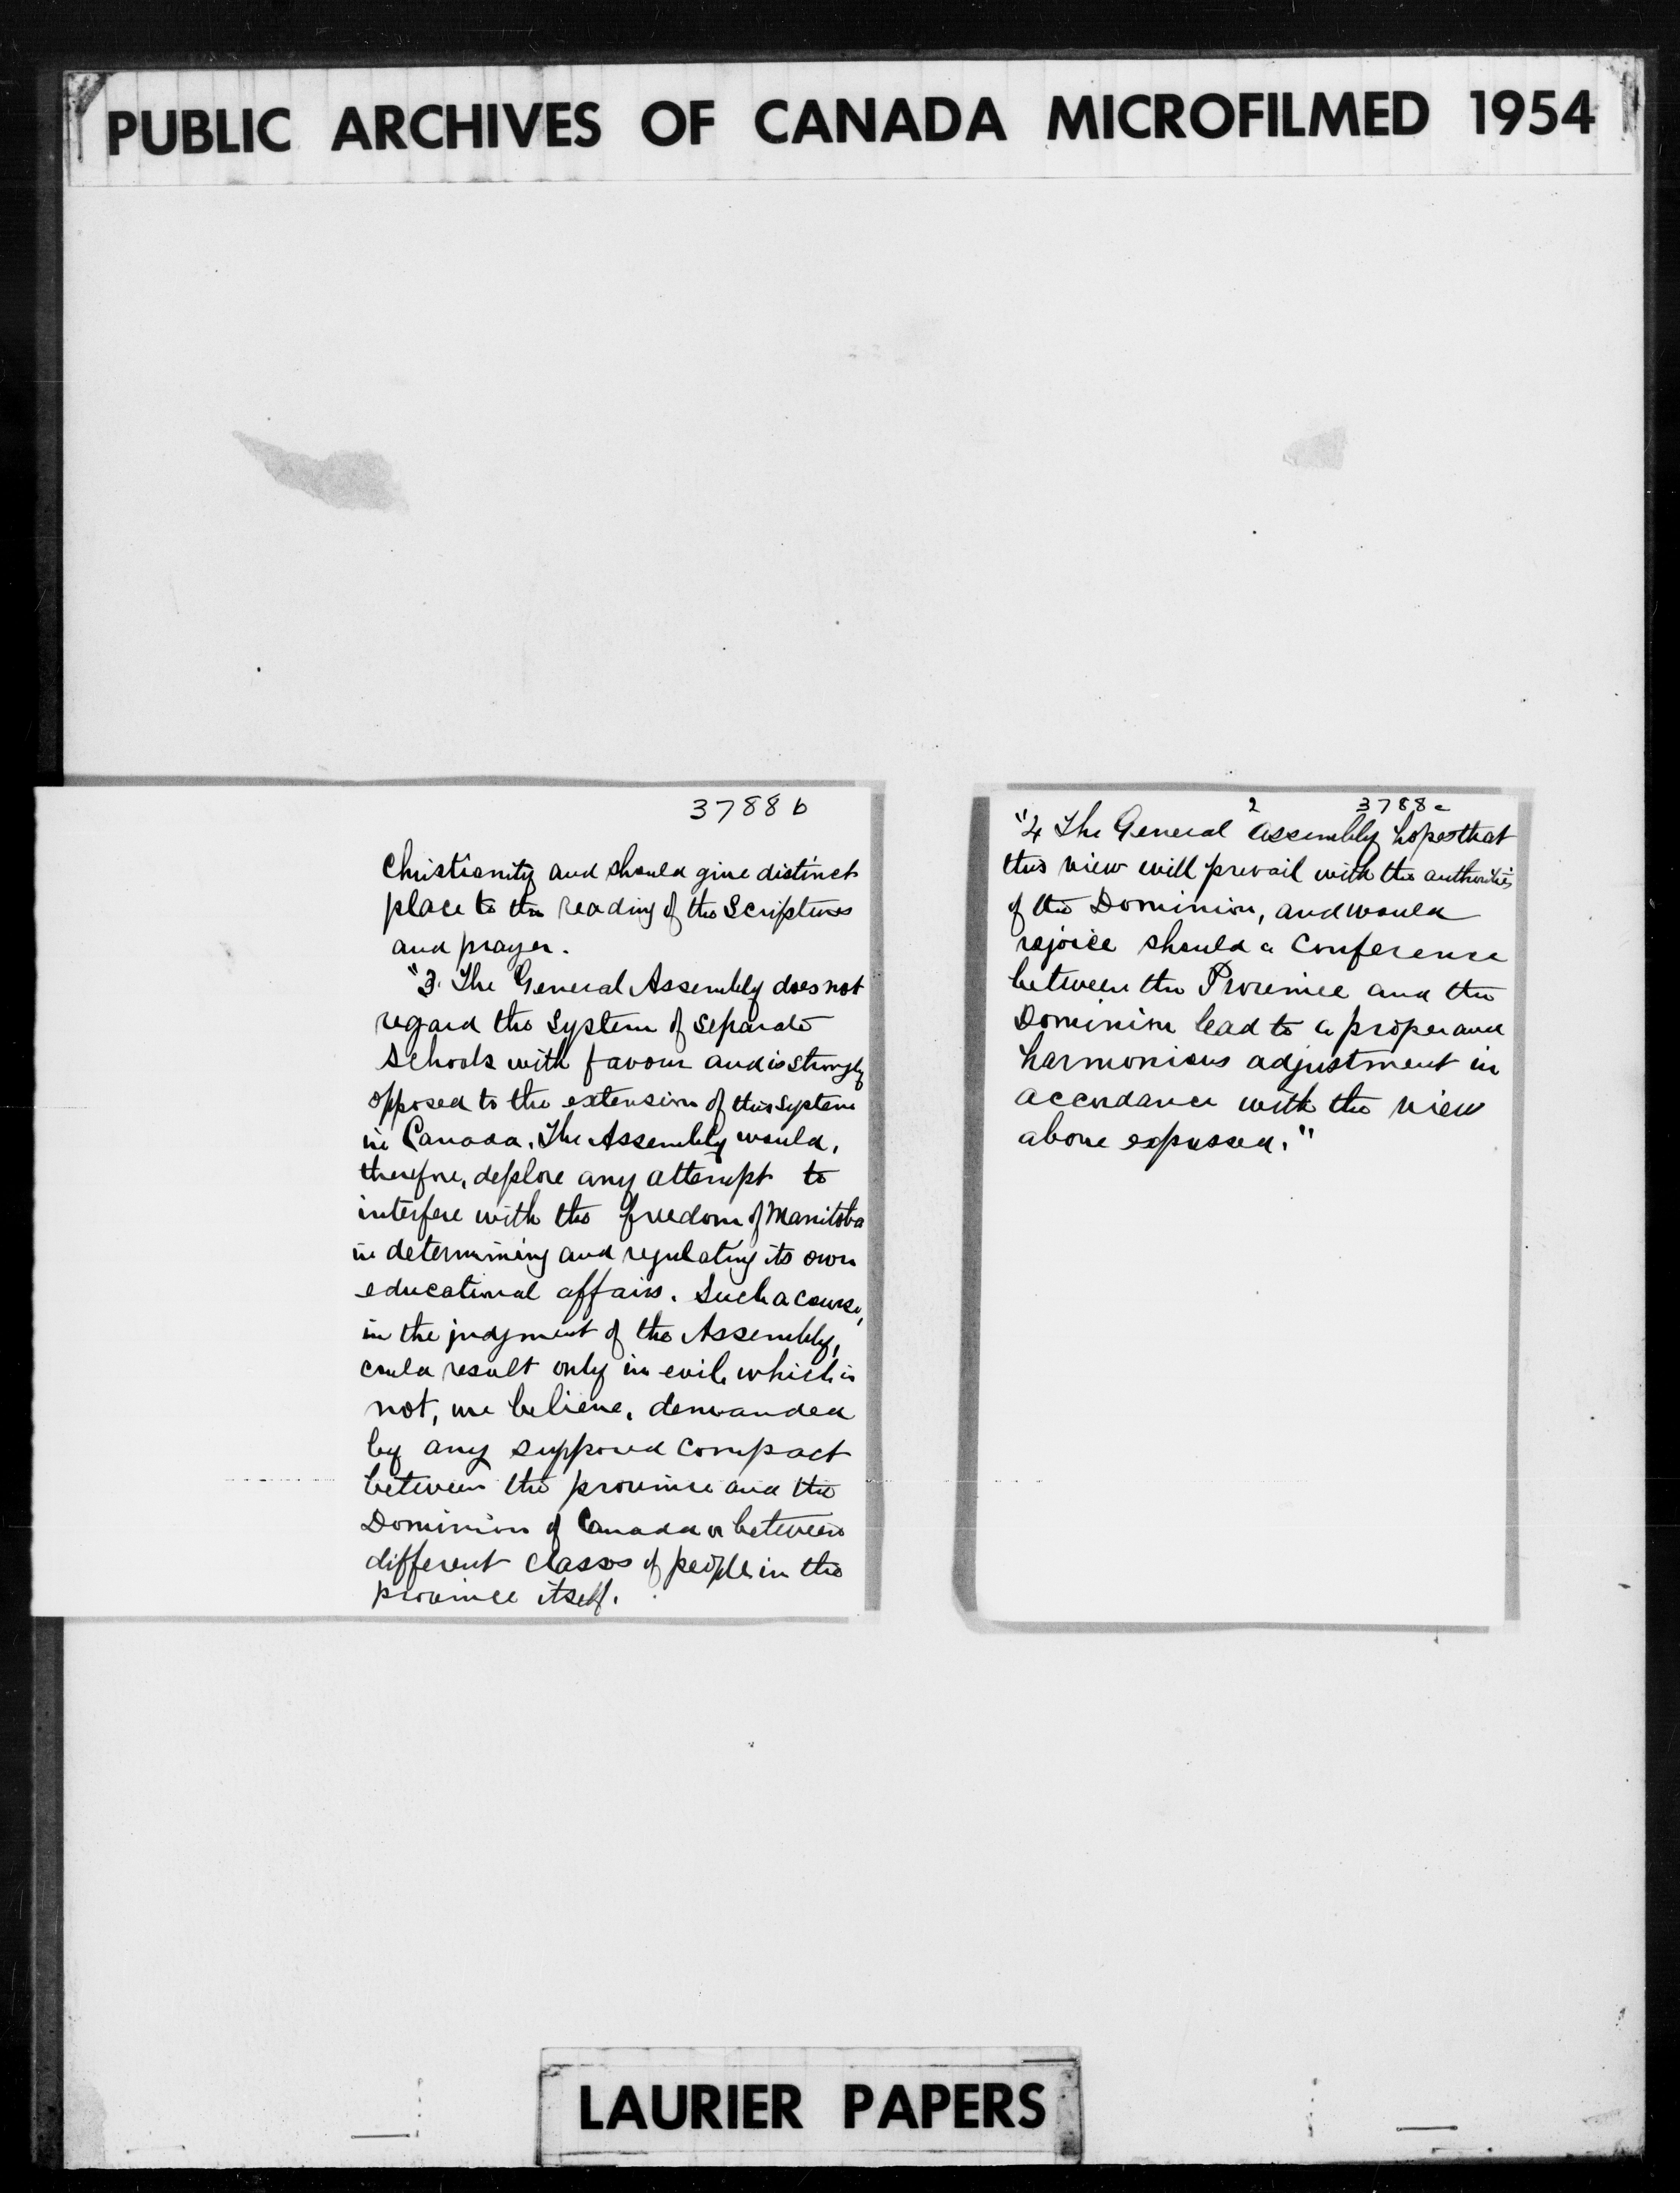 PUBLIC ARCHIVES OF CANADA MICROFILMED 1954
3788 b
Christianity and should give distinct
place to the reading of the Scriptures
and prayer.
"3. The General Assembly does not
regard the System of Separate
Schools with favour and is strongly
opposed to the extension of this system
in Canada. The Assembly would,
therefore, deplore any attempt to
interfere with the freedom of Manitoba
in determining and regulating its own
educational affairs. Such a course,
in the judgment of the Assembly,
could result only in evil, which is
not, we believe, demanded
by any supposed compact
between the province and the
Dominion of Canada or between
different classes of people in the
province itself.
2 3788 c
"4 The General Assembly hopes that
this view will prevail with the authorities
of the Dominion, and would
rejoice should a Conference
between the Province and the
Dominion lead to a proper and
harmonious adjustment in
accordance with the view
above expressed."
LAURIER PAPERS